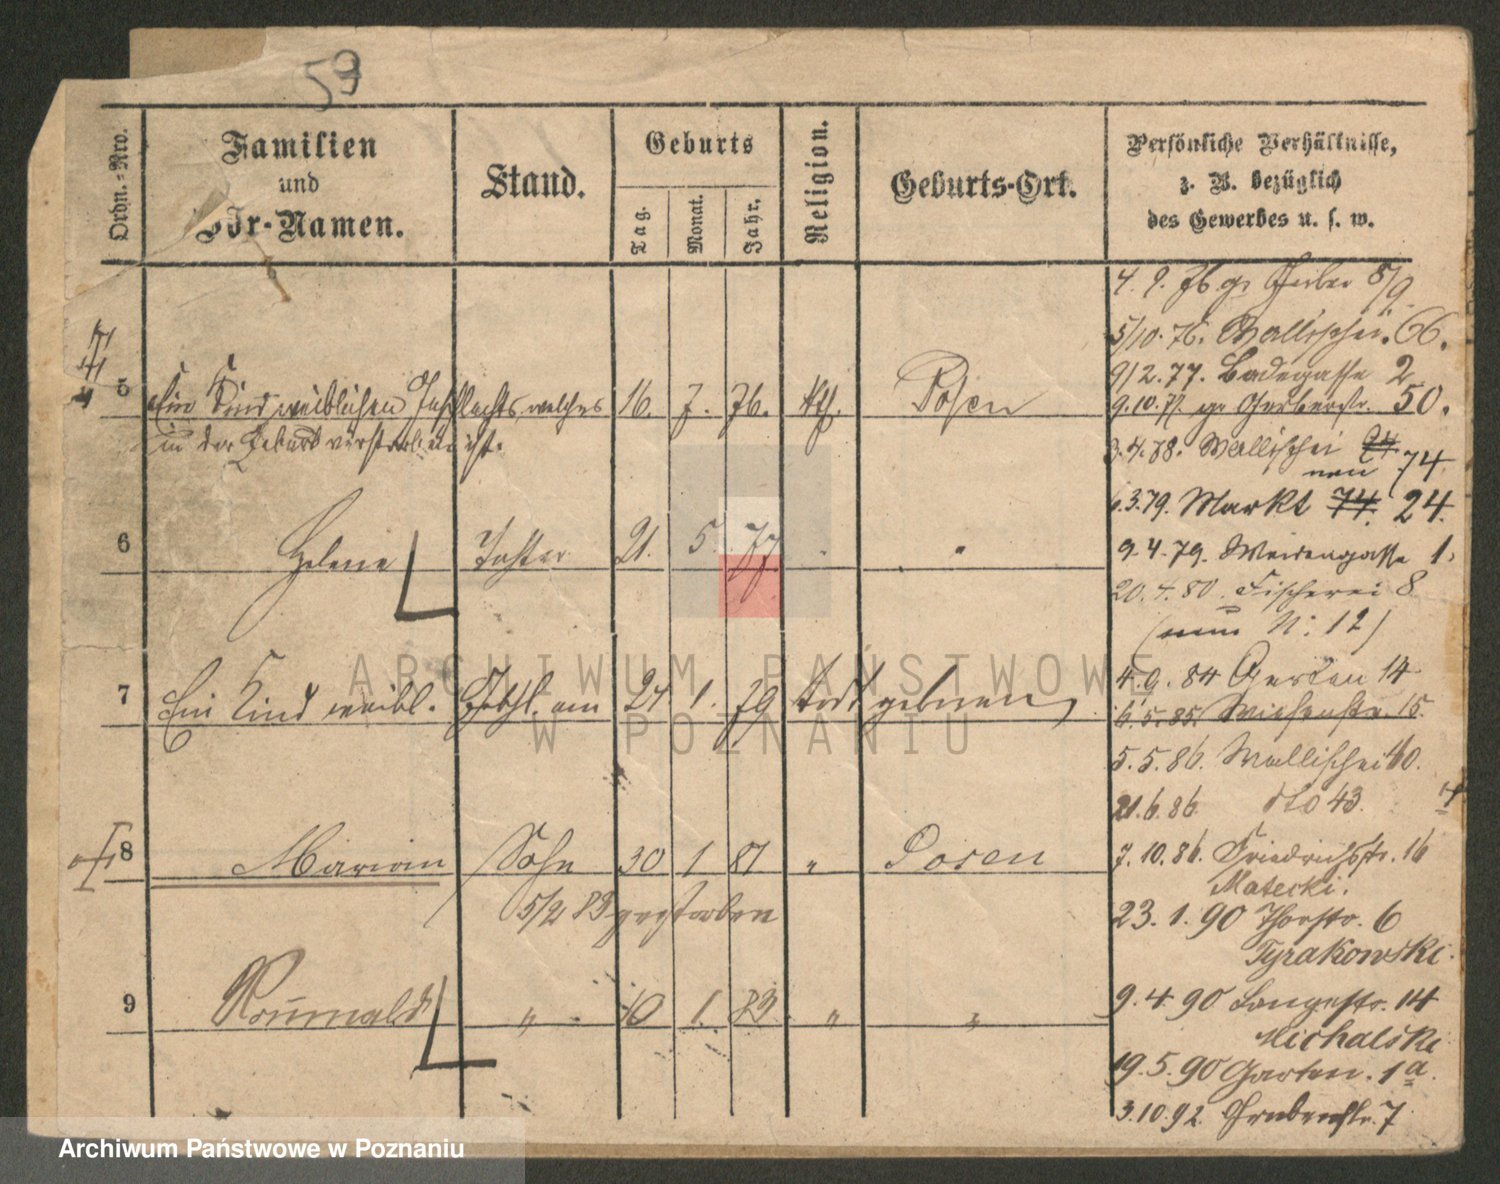 59
Ordn.-Nro.
Familien
und
Vor-Namen.
Stand.
Geburts
Tag.
Monat.
Jahr.
Religion.
Geburts-Ort.
Persönliche Verhältnisse,
z. B. bezüglich
des Gewerbes u. s. w.
4. 9. 76 gr Gerber 8/9
5/10. 76. Wallischei. 66.
9/2. 77. Badegasse 2
5 Ein Kind weiblichen Geschlechts, welches 16. 7. 76. kth. Posen
9.10.77. gr Gerberstr. 50.
in der Geburt verstorben ist.
3.4.78. Wallischei 24
neu 74
6.3.79. Markt 74. 24.
6 Helene Tochter 21. 5. 77 "
9.4.79. Weidengasse 1.
20.4.80. Fischerei 8
(neu N: 12)
7 Ein Kind weibl. Geschl. am 24 1. 79 todt geboren
4.9.84 Garten 14
6.5.85. Wiesenstr. 15.
5.5.86. Wallischei 40.
21.6.86 dto 43.
8 Marian Sohn 30 1 81 " Posen
7.10.86. Friedrichsstr. 16
Matecki.
5/2 83 gestorben
23.1.90 Thorstr. 6
Tyrakowski.
9 Romuald " 10 1. 83 " "
9.4.90 Langestr. 14
Michalski
19.5.90 Garten. 1a.
3.10.92. Grabenstr. 7
ARCHIWUM PAŃSTWOWE
W POZNANIU
Archiwum Państwowe w Poznaniu